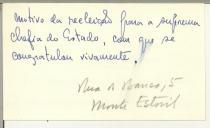 motivo da reeleição para a suprema
chefia do Estado, com que se
congratulam vivamente.
Rua A Banco, 5
Monte Estoril